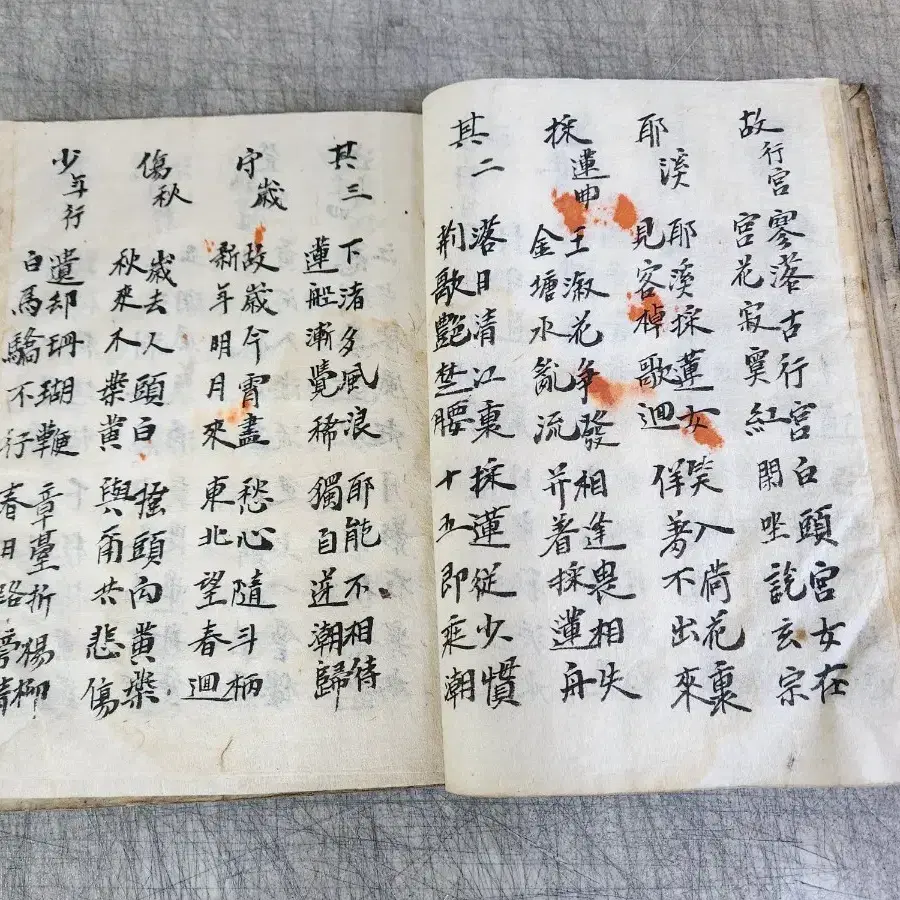 故行宮
寥落古行宮
宮花寂寞紅
白頭宮女在
閑坐說玄宗
耶溪
耶溪採蓮女
見客棹歌迴
笑入荷花裏
佯羞不出來
採蓮曲
玉溆花争發
金塘水亂流
相逢畏相失
并着採蓮舟
其二
落日清江裏
荆歌艶楚腰
採蓮從少慣
十五即乘潮
其三
下渚多風浪
蓮船漸覺稀
耶能不相待
獨自逆潮歸
守歲
故歲今宵盡
新年明月來
愁心隨斗柄
東北望春迴
傷秋
歲去人頭白
秋來木葉黄
搔頭向黄葉
與甬共悲傷
少年行
遺却珊瑚鞭
白馬驕不行
章臺折楊柳
春日路傍情